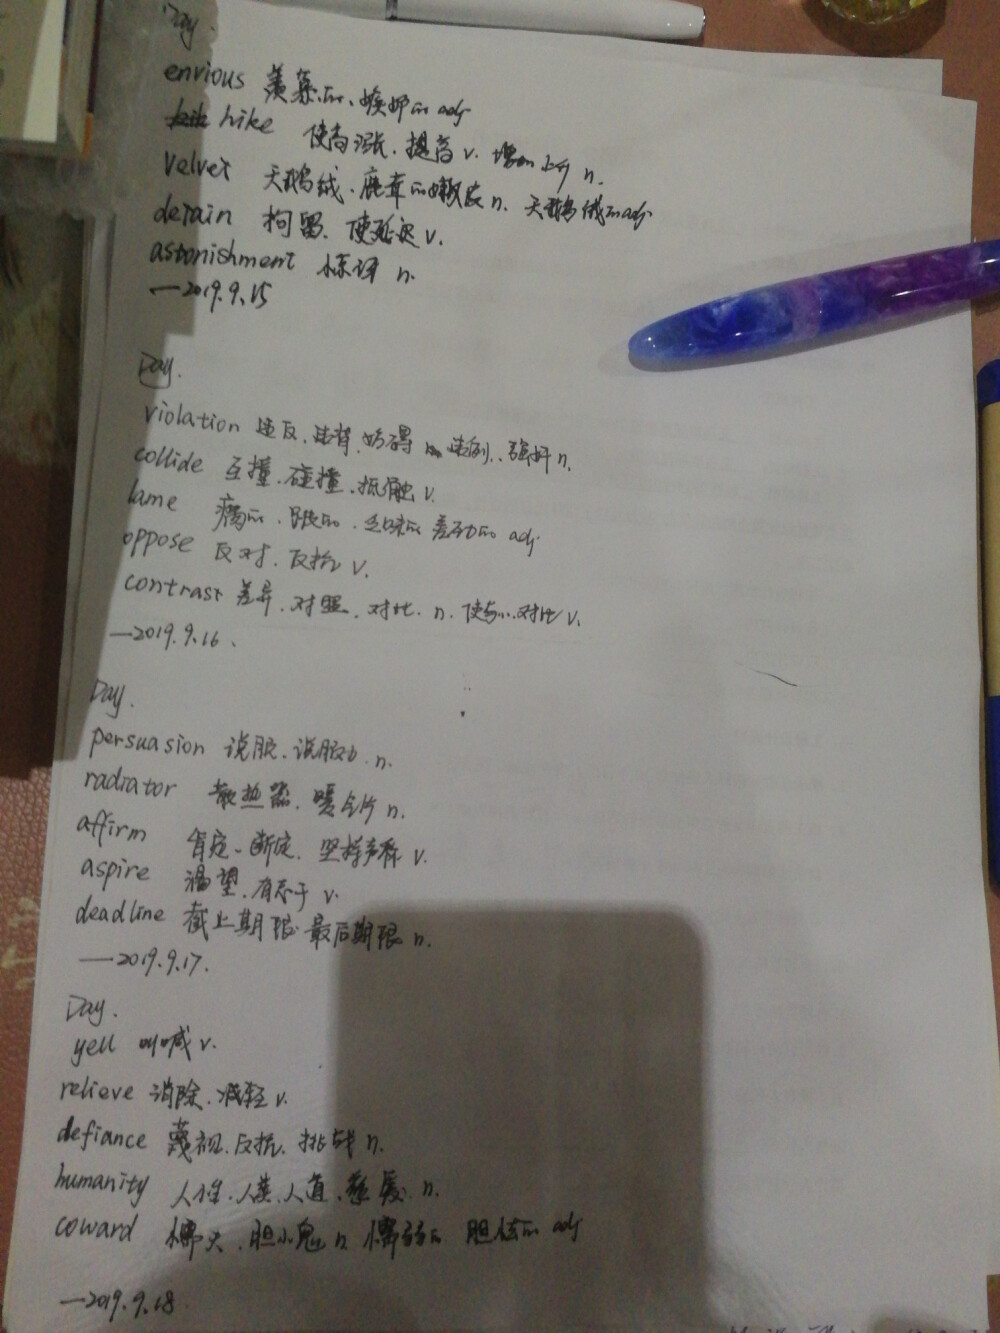 Day.
envious 羡慕的、嫉妒的 adj
hike 使高涨、提高 v. 增加 上升 n.
velvet 天鹅绒、鹿茸的嫩皮 n. 天鹅绒的 adj
detain 拘留、使延迟 v.
astonishment 惊讶 n.
—2019.9.15
Day.
violation 违反、违背、妨碍 违例、强奸 n.
collide 互撞、碰撞、抵触 v.
lame 瘸的、跛的、乏味的 差劲的 adj
oppose 反对、反抗 v.
contrast 差异、对照、对比 n. 使与...对比 v.
—2019.9.16.
Day.
persuasion 说服、说服力 n.
radiator 散热器、暖气片 n.
affirm 肯定、断定、坚持声称 v.
aspire 渴望、有志于 v.
deadline 截止期限 最后期限 n.
—2019.9.17.
Day.
yell 叫喊 v.
relieve 消除、减轻 v.
defiance 蔑视、反抗、挑战 n.
humanity 人性、人类、人道、慈爱 n.
coward 懦夫、胆小鬼 n. 懦弱的、胆怯的 adj
—2019.9.18.